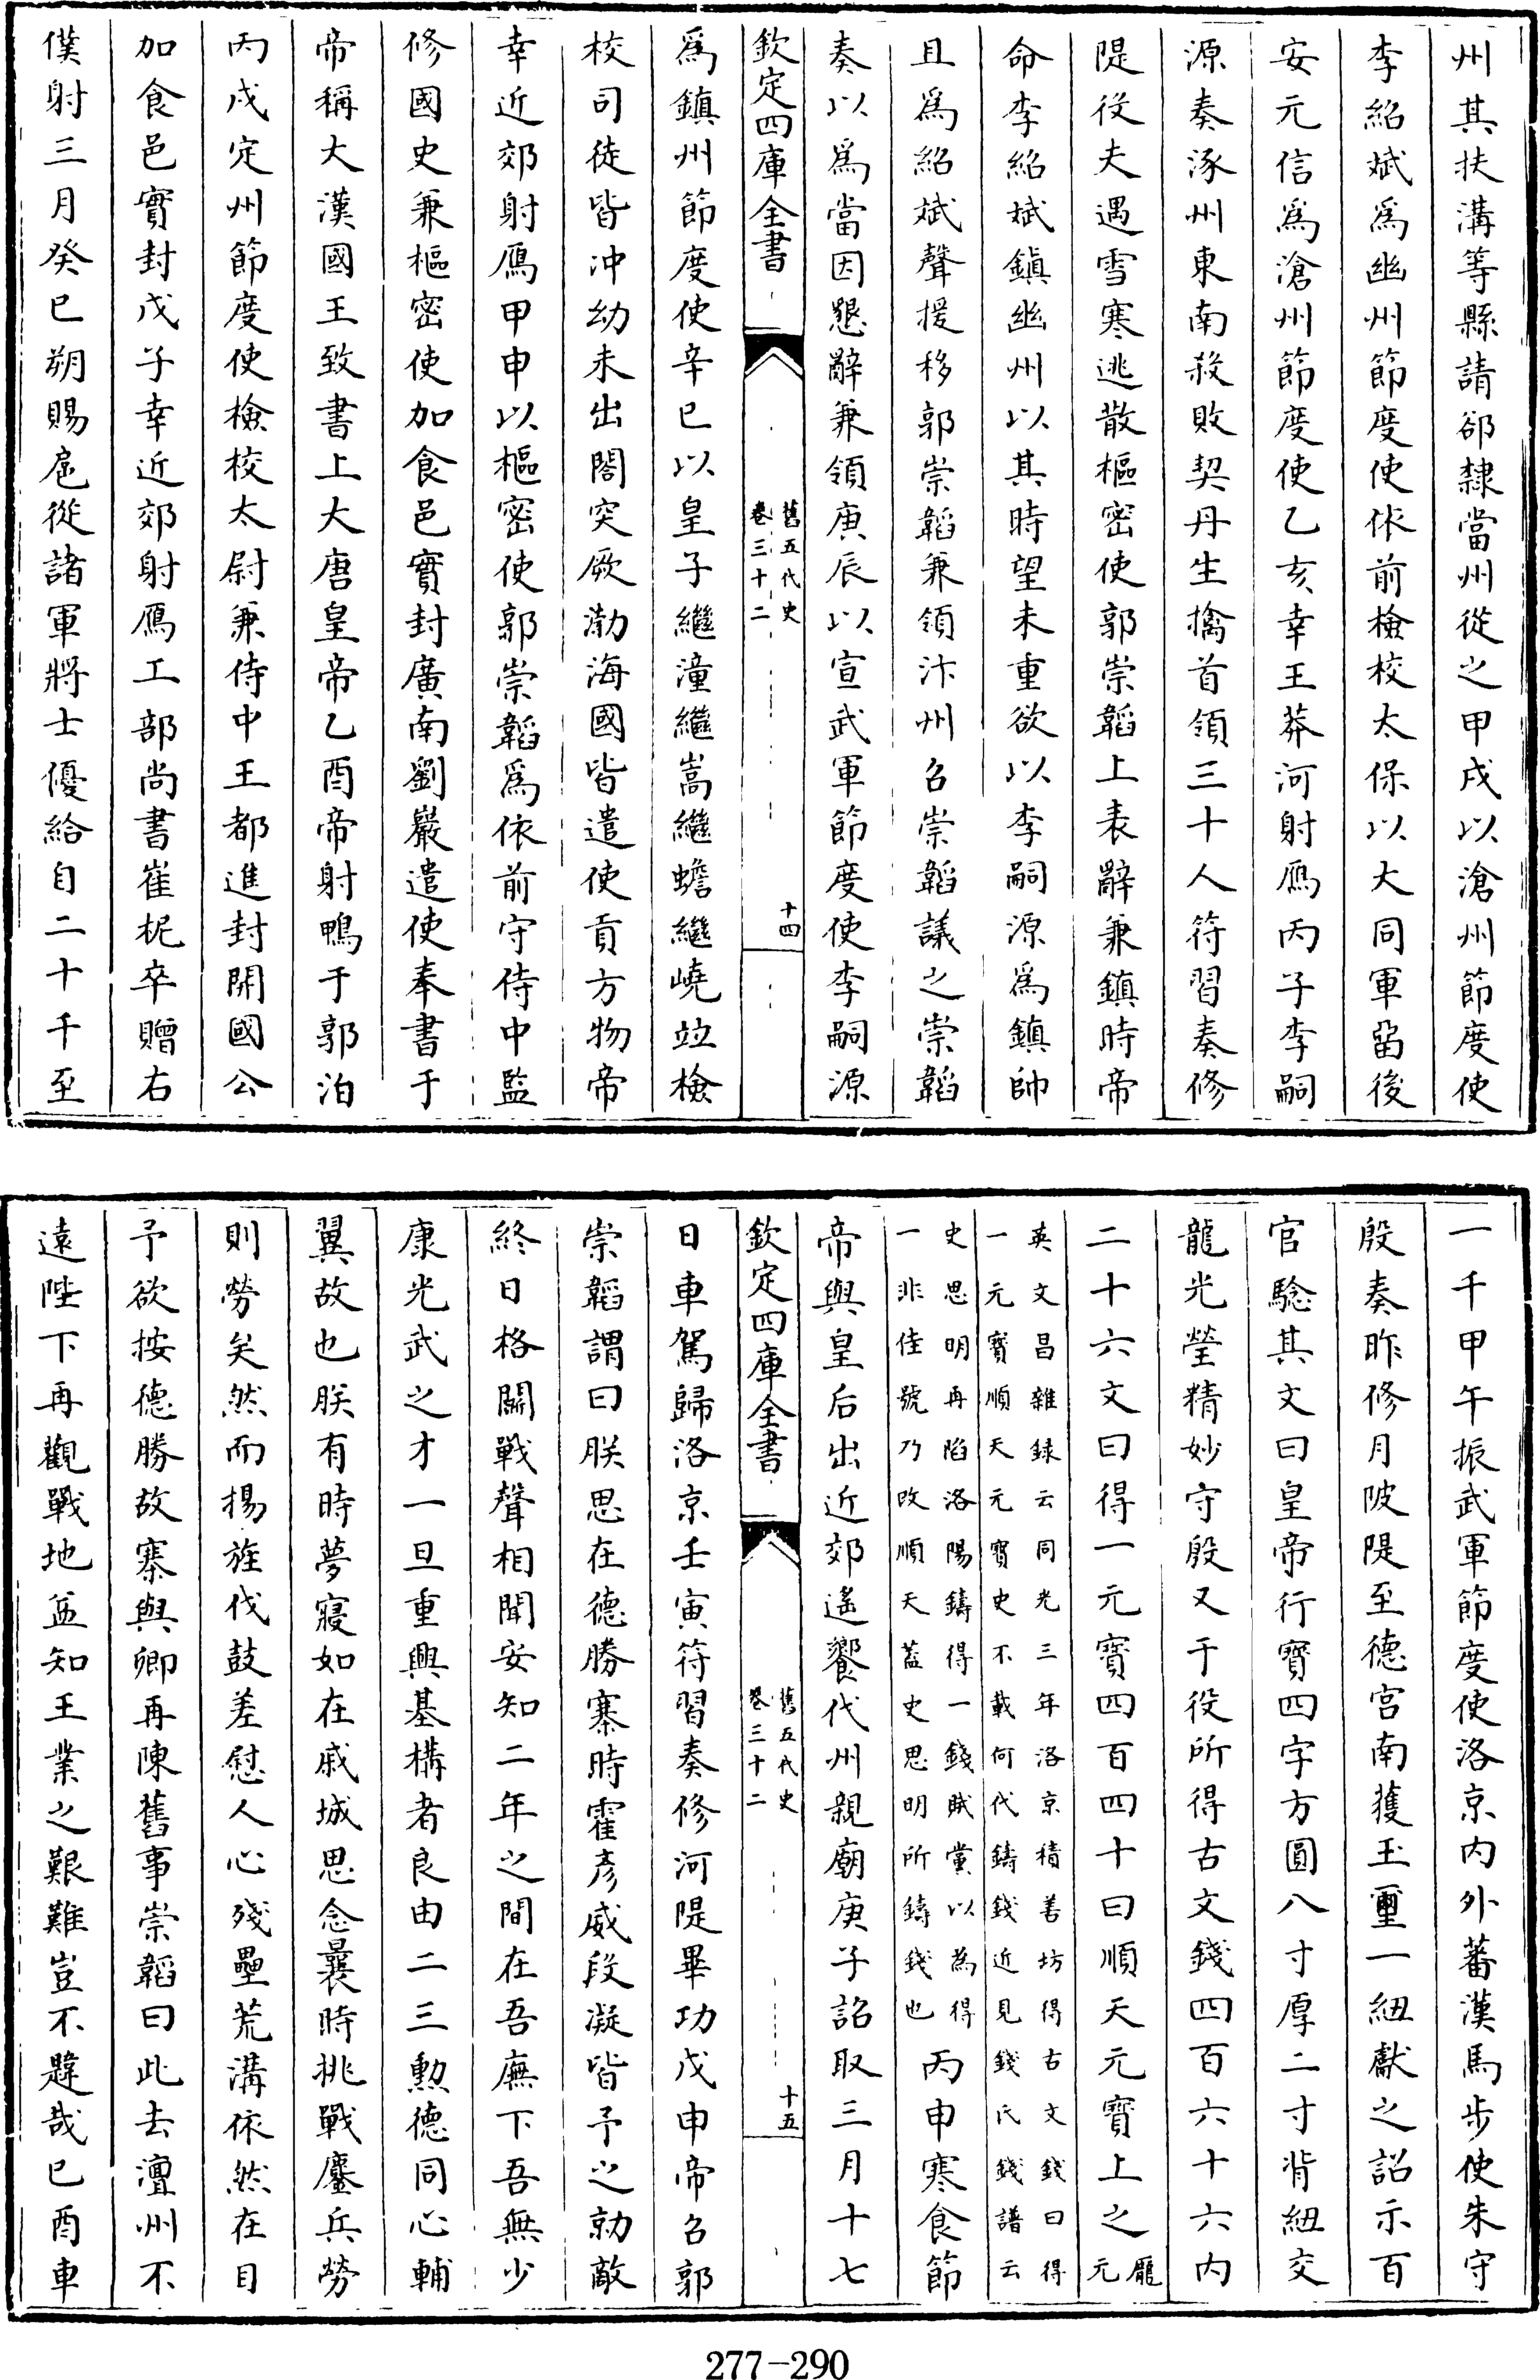 州其扶溝等縣請郤隸當州從之甲戌以滄州節度使
李紹斌爲幽州節度使依前檢校太保以大同軍留後
安元信爲滄州節度使乙亥幸王莽河射鴈丙子李嗣
源奏涿州東南殺敗契丹生擒首領三十人符習奏修
隄役夫遇雪寒逃散樞密使郭崇韜上表辭兼鎮時帝
命李紹斌鎮幽州以其時望未重欲以李嗣源爲鎮帥
且爲紹斌聲援移郭崇韜兼領汴州召崇韜議之崇韜
奏以爲當因懇辭兼領庚辰以宣武軍節度使李嗣源
欽定四庫全書
舊五代史
卷三十二
十四
爲鎮州節度使辛巳以皇子繼潼繼嵩繼蟾繼嶢竝檢
校司徒皆冲幼未出閤突厥渤海國皆遣使貢方物帝
幸近郊射鴈甲申以樞密使郭崇韜爲依前守侍中監
修國史兼樞密使加食邑實封廣南劉巖遣使奉書于
帝稱大漢國王致書上大唐皇帝乙酉帝射鴨于郭泊
丙戌定州節度使檢校太尉兼侍中王都進封開國公
加食邑實封戊子幸近郊射鴈工部尚書崔梲卒贈右
僕射三月癸巳朔賜扈從諸軍將士優給自二十千至
一千甲午振武軍節度使洛京内外蕃漢馬步使朱守
殷奏昨修月陂隄至德宫南獲玉璽一紐獻之詔示百
官騐其文曰皇帝行寶四字方圓八寸厚二寸背紐交
龍光瑩精妙守殷又于役所得古文錢四百六十六内
二十六文曰得一元寶四百四十曰順天元寶上之龎元
英文昌雜録云同光三年洛京積善坊得古文錢曰得
一元寶順天元寶史不載何代鑄錢近見錢氏錢譜云
史思明再陷洛陽鑄得一錢賊黨以為得
一非佳號乃改順天葢史思明所鑄錢也丙申寒食節
帝與皇后出近郊遥饗代州親廟庚子詔取三月十七
欽定四庫全書
舊五代史
卷三十二
十五
日車駕歸洛京壬寅符習奏修河隄畢功戊申帝召郭
崇韜謂曰朕思在德勝寨時霍彦威段凝皆予之勍敵
終日格鬭戰聲相聞安知二年之間在吾廡下吾無少
康光武之才一旦重興基構者良由二三勲德同心輔
翼故也朕有時夢寢如在戚城思念曩時挑戰鏖兵勞
則勞矣然而揚旌伐鼓差慰人心殘壘荒溝依然在目
予欲按德勝故寨與卿再陳舊事崇韜曰此去澶州不
遠陛下再觀戰地益知王業之艱難豈不韙哉己酉車
277-290